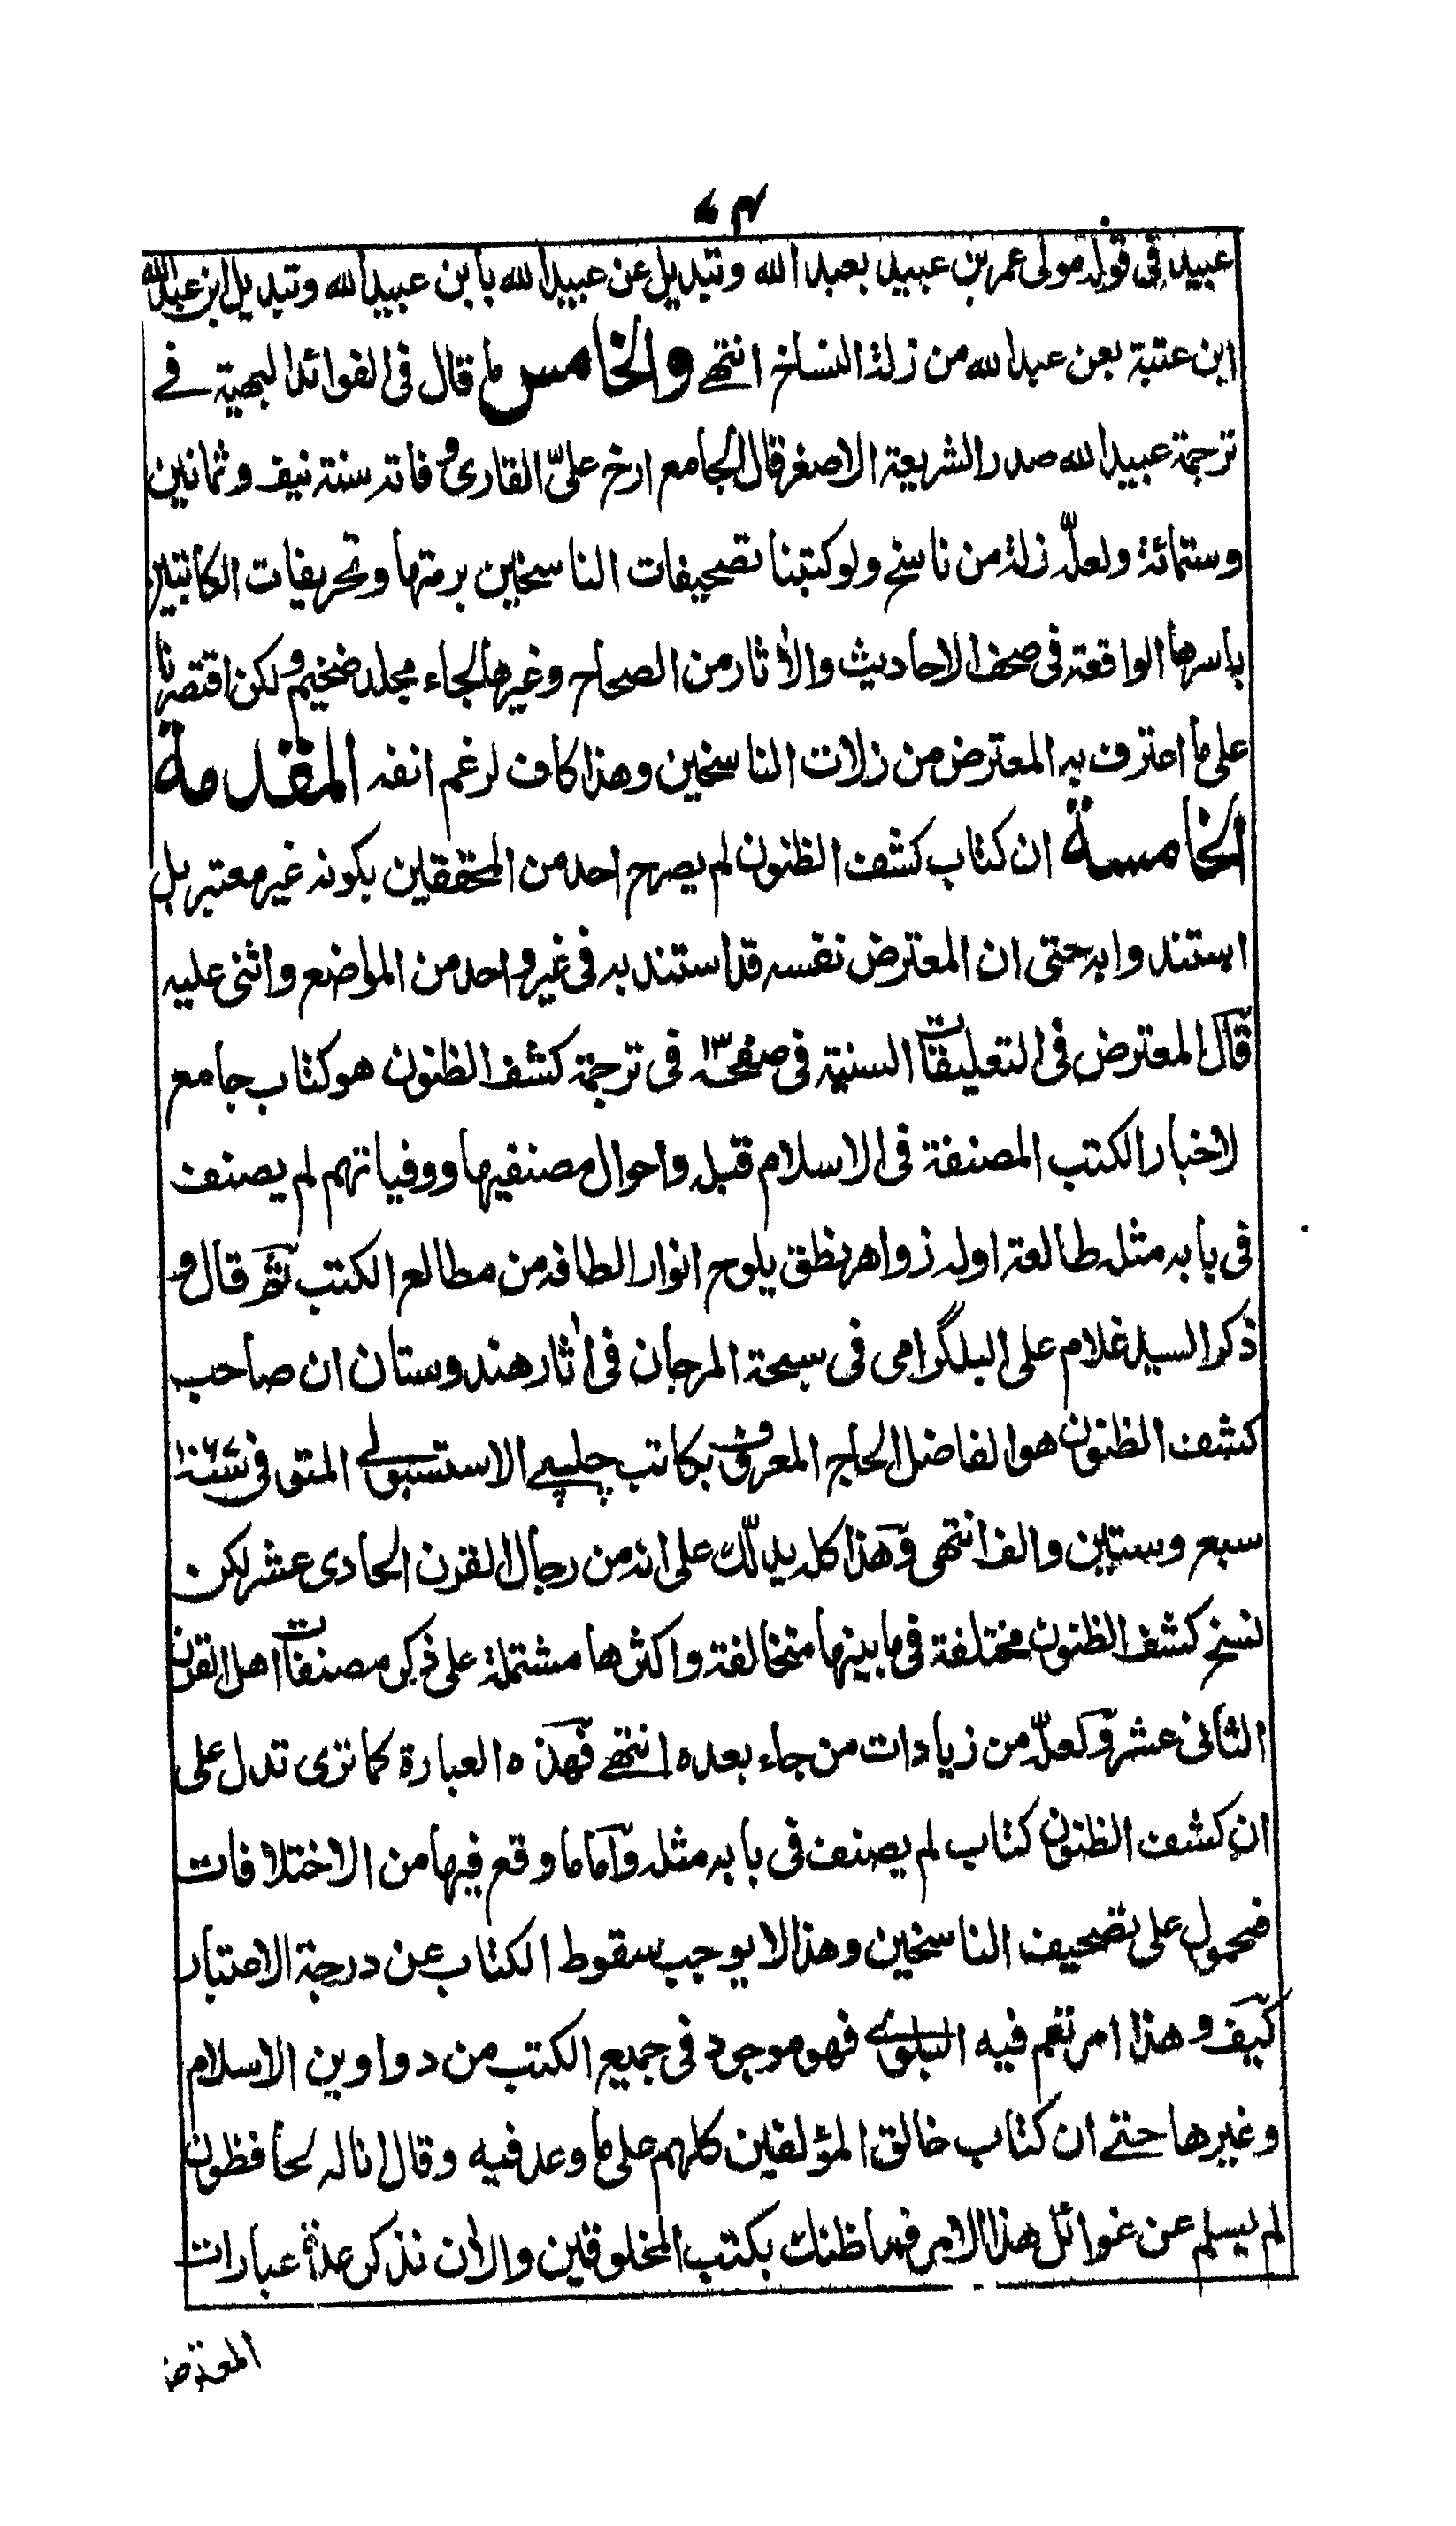 عبيد في قوله مولى عمر بن عبيد بعبد الله وتبديل عن عبيد الله بابن عبيد الله وتبديل ابن عبد الله
ابن عتبة بعن عبد الله من زلة النساخ انتهى والخامس ما قال في الفوائد البهية في
ترجمة عبيد الله صدر الشريعة الاصغر قال الجامع ارخ على القاري وفاته سنة نيف وثمانين
وستمائة ولعله زلة من ناسخ ولو كتبنا تصحيفات الناسخين برمتها وتحريفات الكاتبين
باسرها الواقعة في صحف الاحاديث والآثار من الصحاح وغيرها لجاء مجلد ضخيم ولكن اقتصرنا
على ما اعترف به المعترض من زلات الناسخين وهذا كاف لرغم انفه المقدمة
الخامسة ان كتاب كشف الظنون لم يصرح احد من المحققين بكونه غير معتبر بل
استندوا به حتى ان المعترض نفسه قد استند به في غير واحد من المواضع واثنى عليه
قال المعترض في التعليقات السنية في صفحة ١٣ في ترجمة كشف الظنون هو كتاب جامع
لاخبار الكتب المصنفة في الاسلام قبله واحوال مصنفيها ووفياتهم لم يصنف
في بابه مثله طالعته اوله زواهر نطق يلوح انوار الطافه من مطالع الكتب ثم قال و
ذكر السيد غلام على البلگرامى في سبحة المرجان في اٰثار هندوستان ان صاحب
كشف الظنون هو الفاضل الحاج المعروف بكاتب چلپي الاستنبولي المتوفى سنة ١٠٦٧
سبع وستين والف انتهى وهذا كله يدلك على انه من رجال القرن الحادي عشر لكن
نسخ كشف الظنون مختلفة في ما بينها متخالفة واكثرها مشتملة على ذكر مصنفات اهل القرن
الثاني عشر ولعله من زيادات من جاء بعده انتهى فهذه العبارة كما ترى تدل على
ان كشف الظنون كتاب لم يصنف في بابه مثله واما ما وقع فيها من الاختلافات
فمحمول على تصحيف الناسخين وهذا لا يوجب سقوط الكتاب عن درجة الاعتبار
كيف وهذا امر تعم فيه البلوى فهو موجود في جميع الكتب من دواوين الاسلام
وغيرها حتى ان كتاب خالق المؤلفين كلهم على ما وعد فيه وقال انا له لحافظون
لم يسلم عن غوائل هذا الامر فما ظنك بكتب المخلوقين والاٰن نذكر عدة عبارات
المعترض